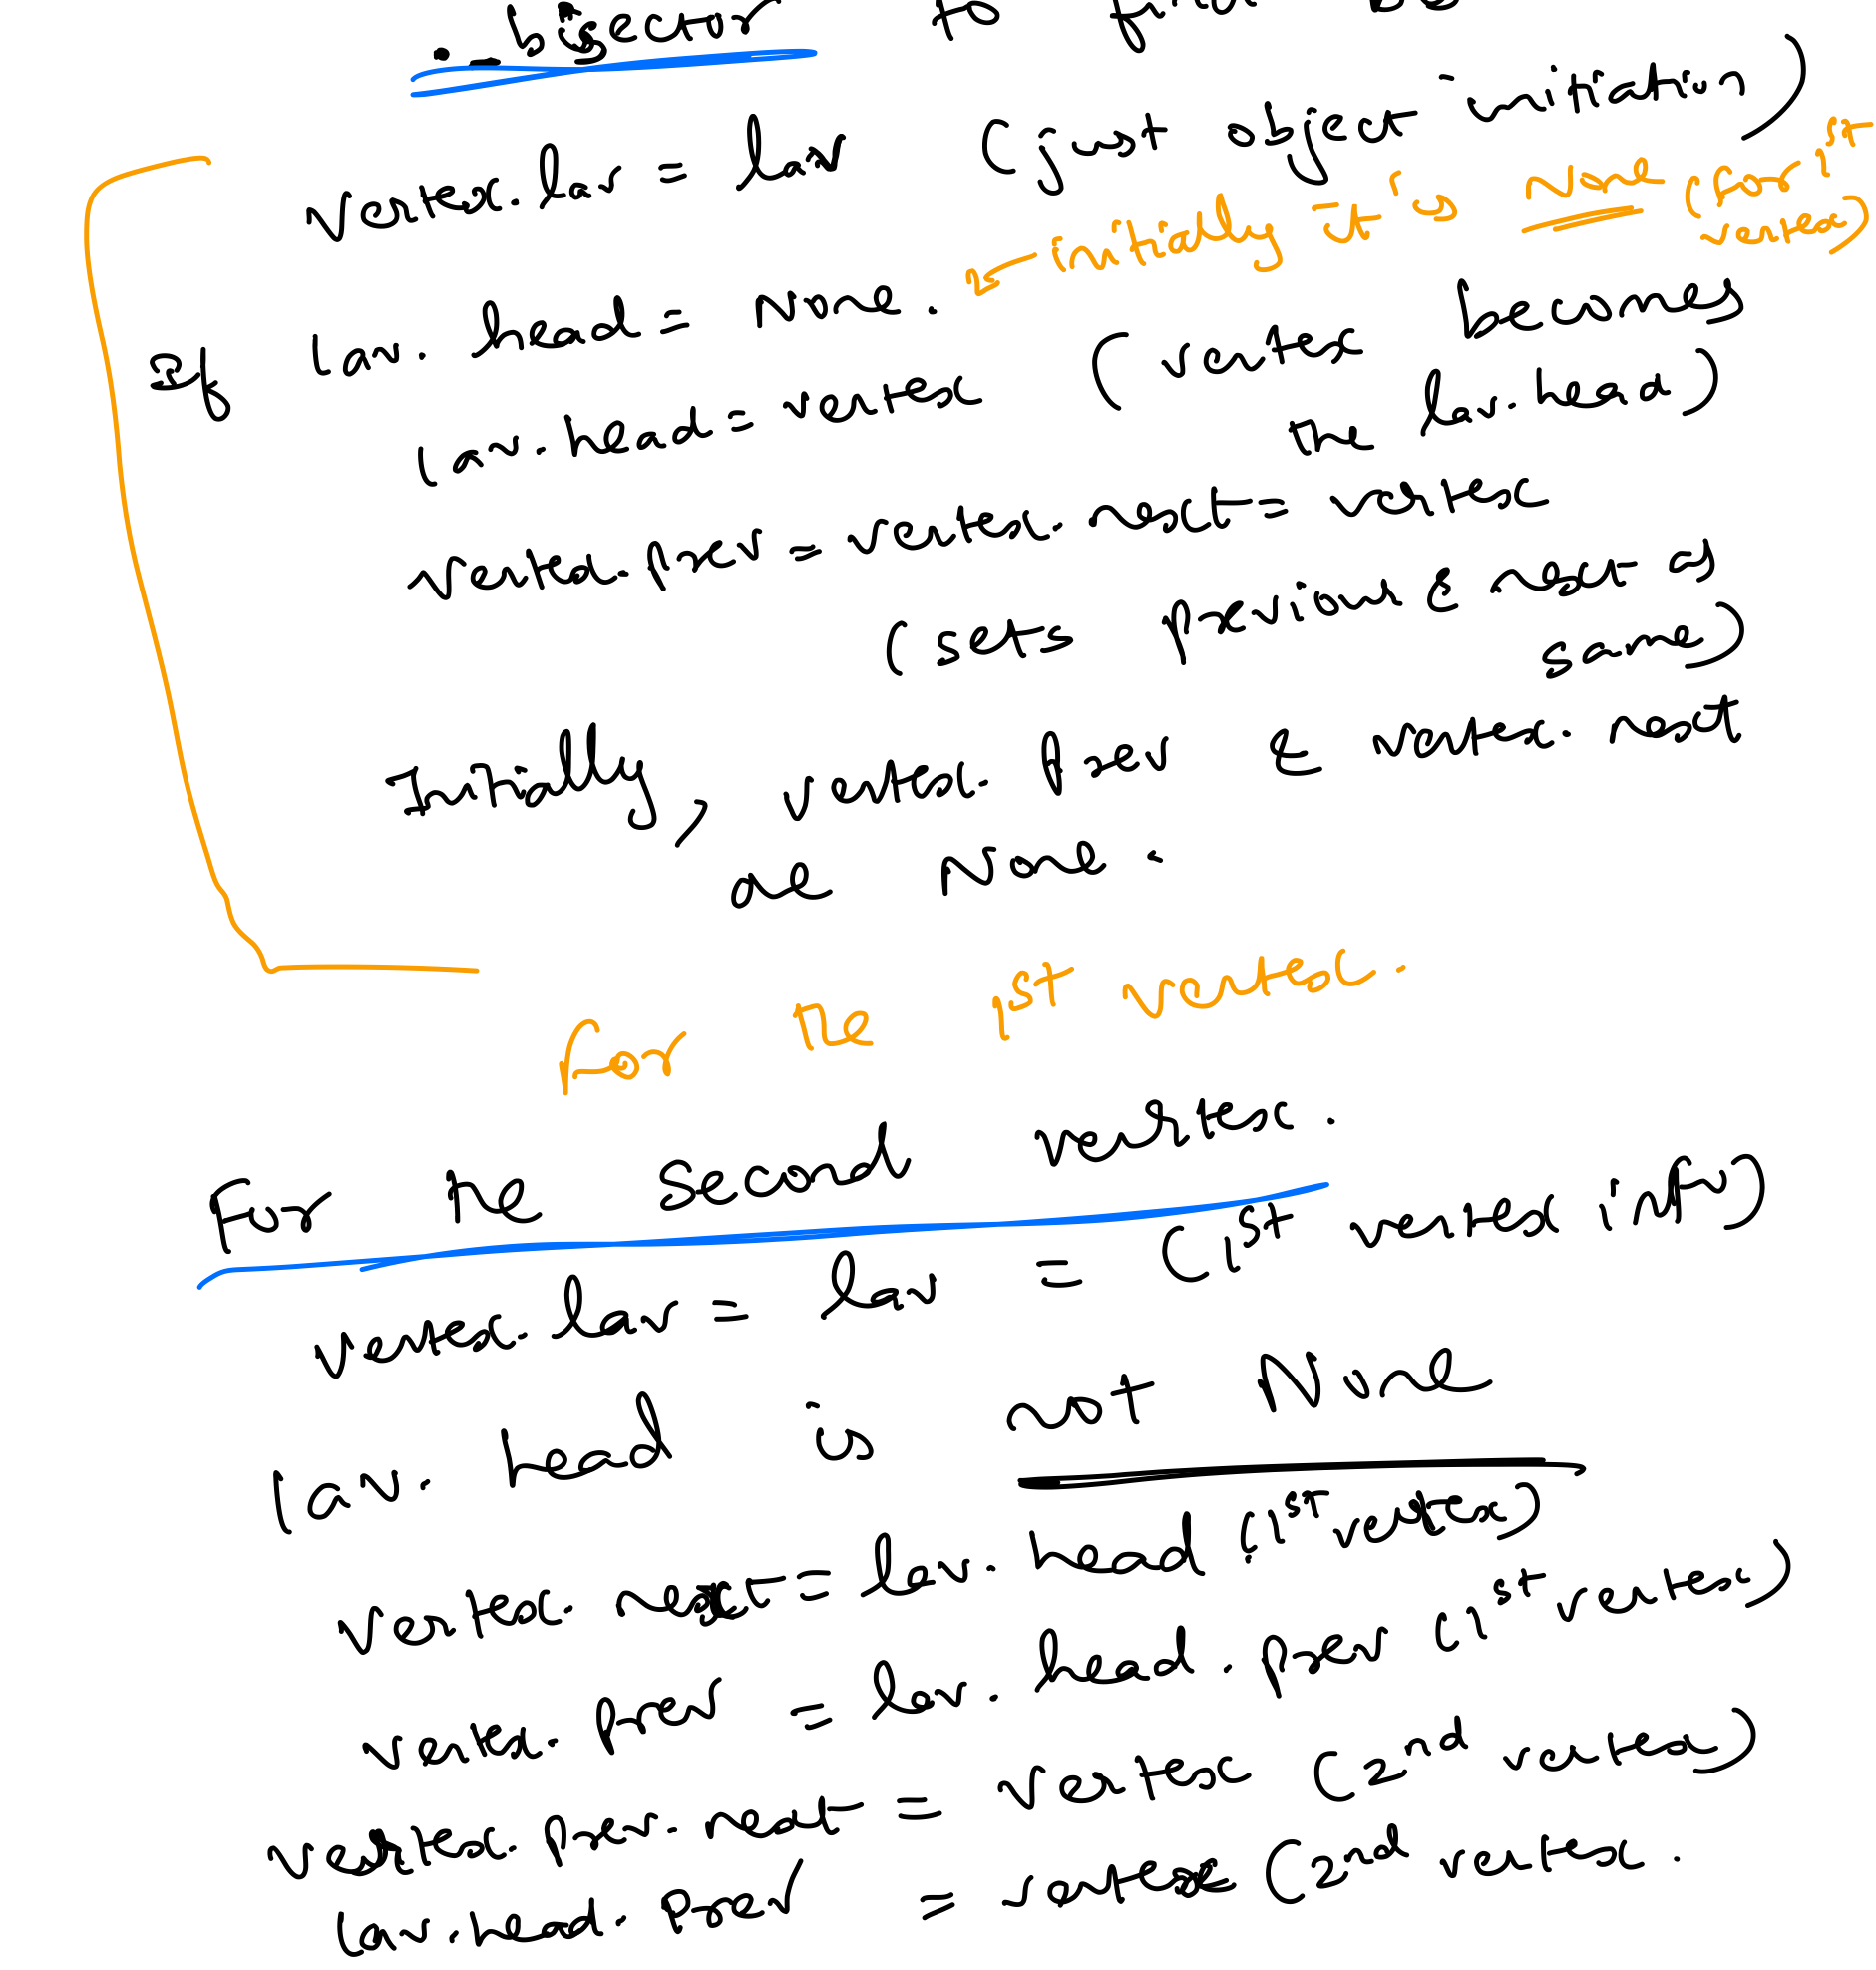 bisector to
vertex.lav = lav (just object initiation)
initially it is None (for 1st vertex)
If lav.head = None.
lav.head = vertex (vertex becomes the lav.head)
vertex.prev = vertex.next = vertex
(sets previous & next as same)
Initially, vertex.prev & vertex.next
are None.
For the 1st vertex.
For the second vertex.
vertex.lav = lav = (1st vertex info)
lav.head is not None
vertex.next = lav.head (1st vertex)
vertex.prev = lav.head.prev (1st vertex)
vertex.prev.next = vertex (2nd vertex)
lav.head.prev = vertex (2nd vertex.